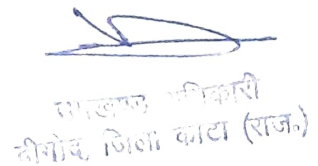 उपखण्ड अधिकारी
दीगोद, जिला कोटा (राज.)